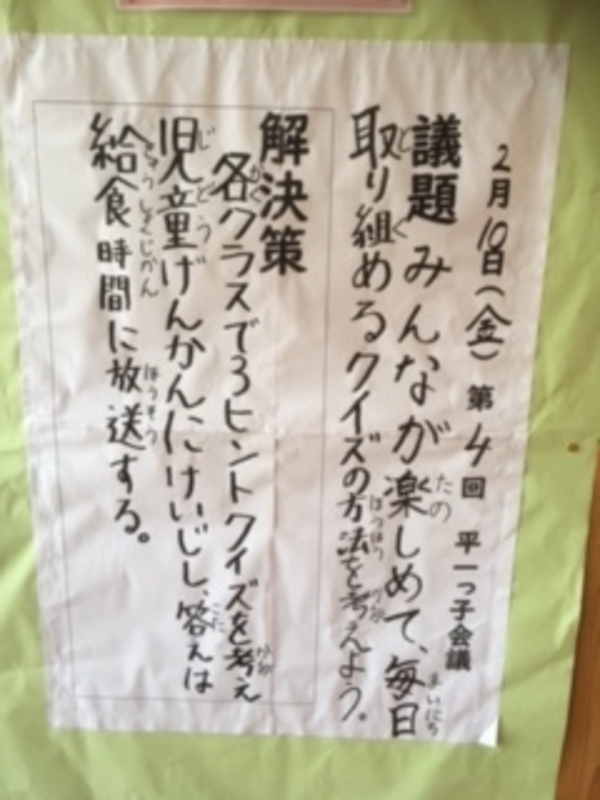 2月10日(金) 第4回 平一っ子会議
議題 みんなが楽しめて、毎日
取り組めるクイズの方法を考えよう。
解決策
各クラスで3ヒントクイズを考え
児童げんかんにけいじし、答えは
給食時間に放送する。